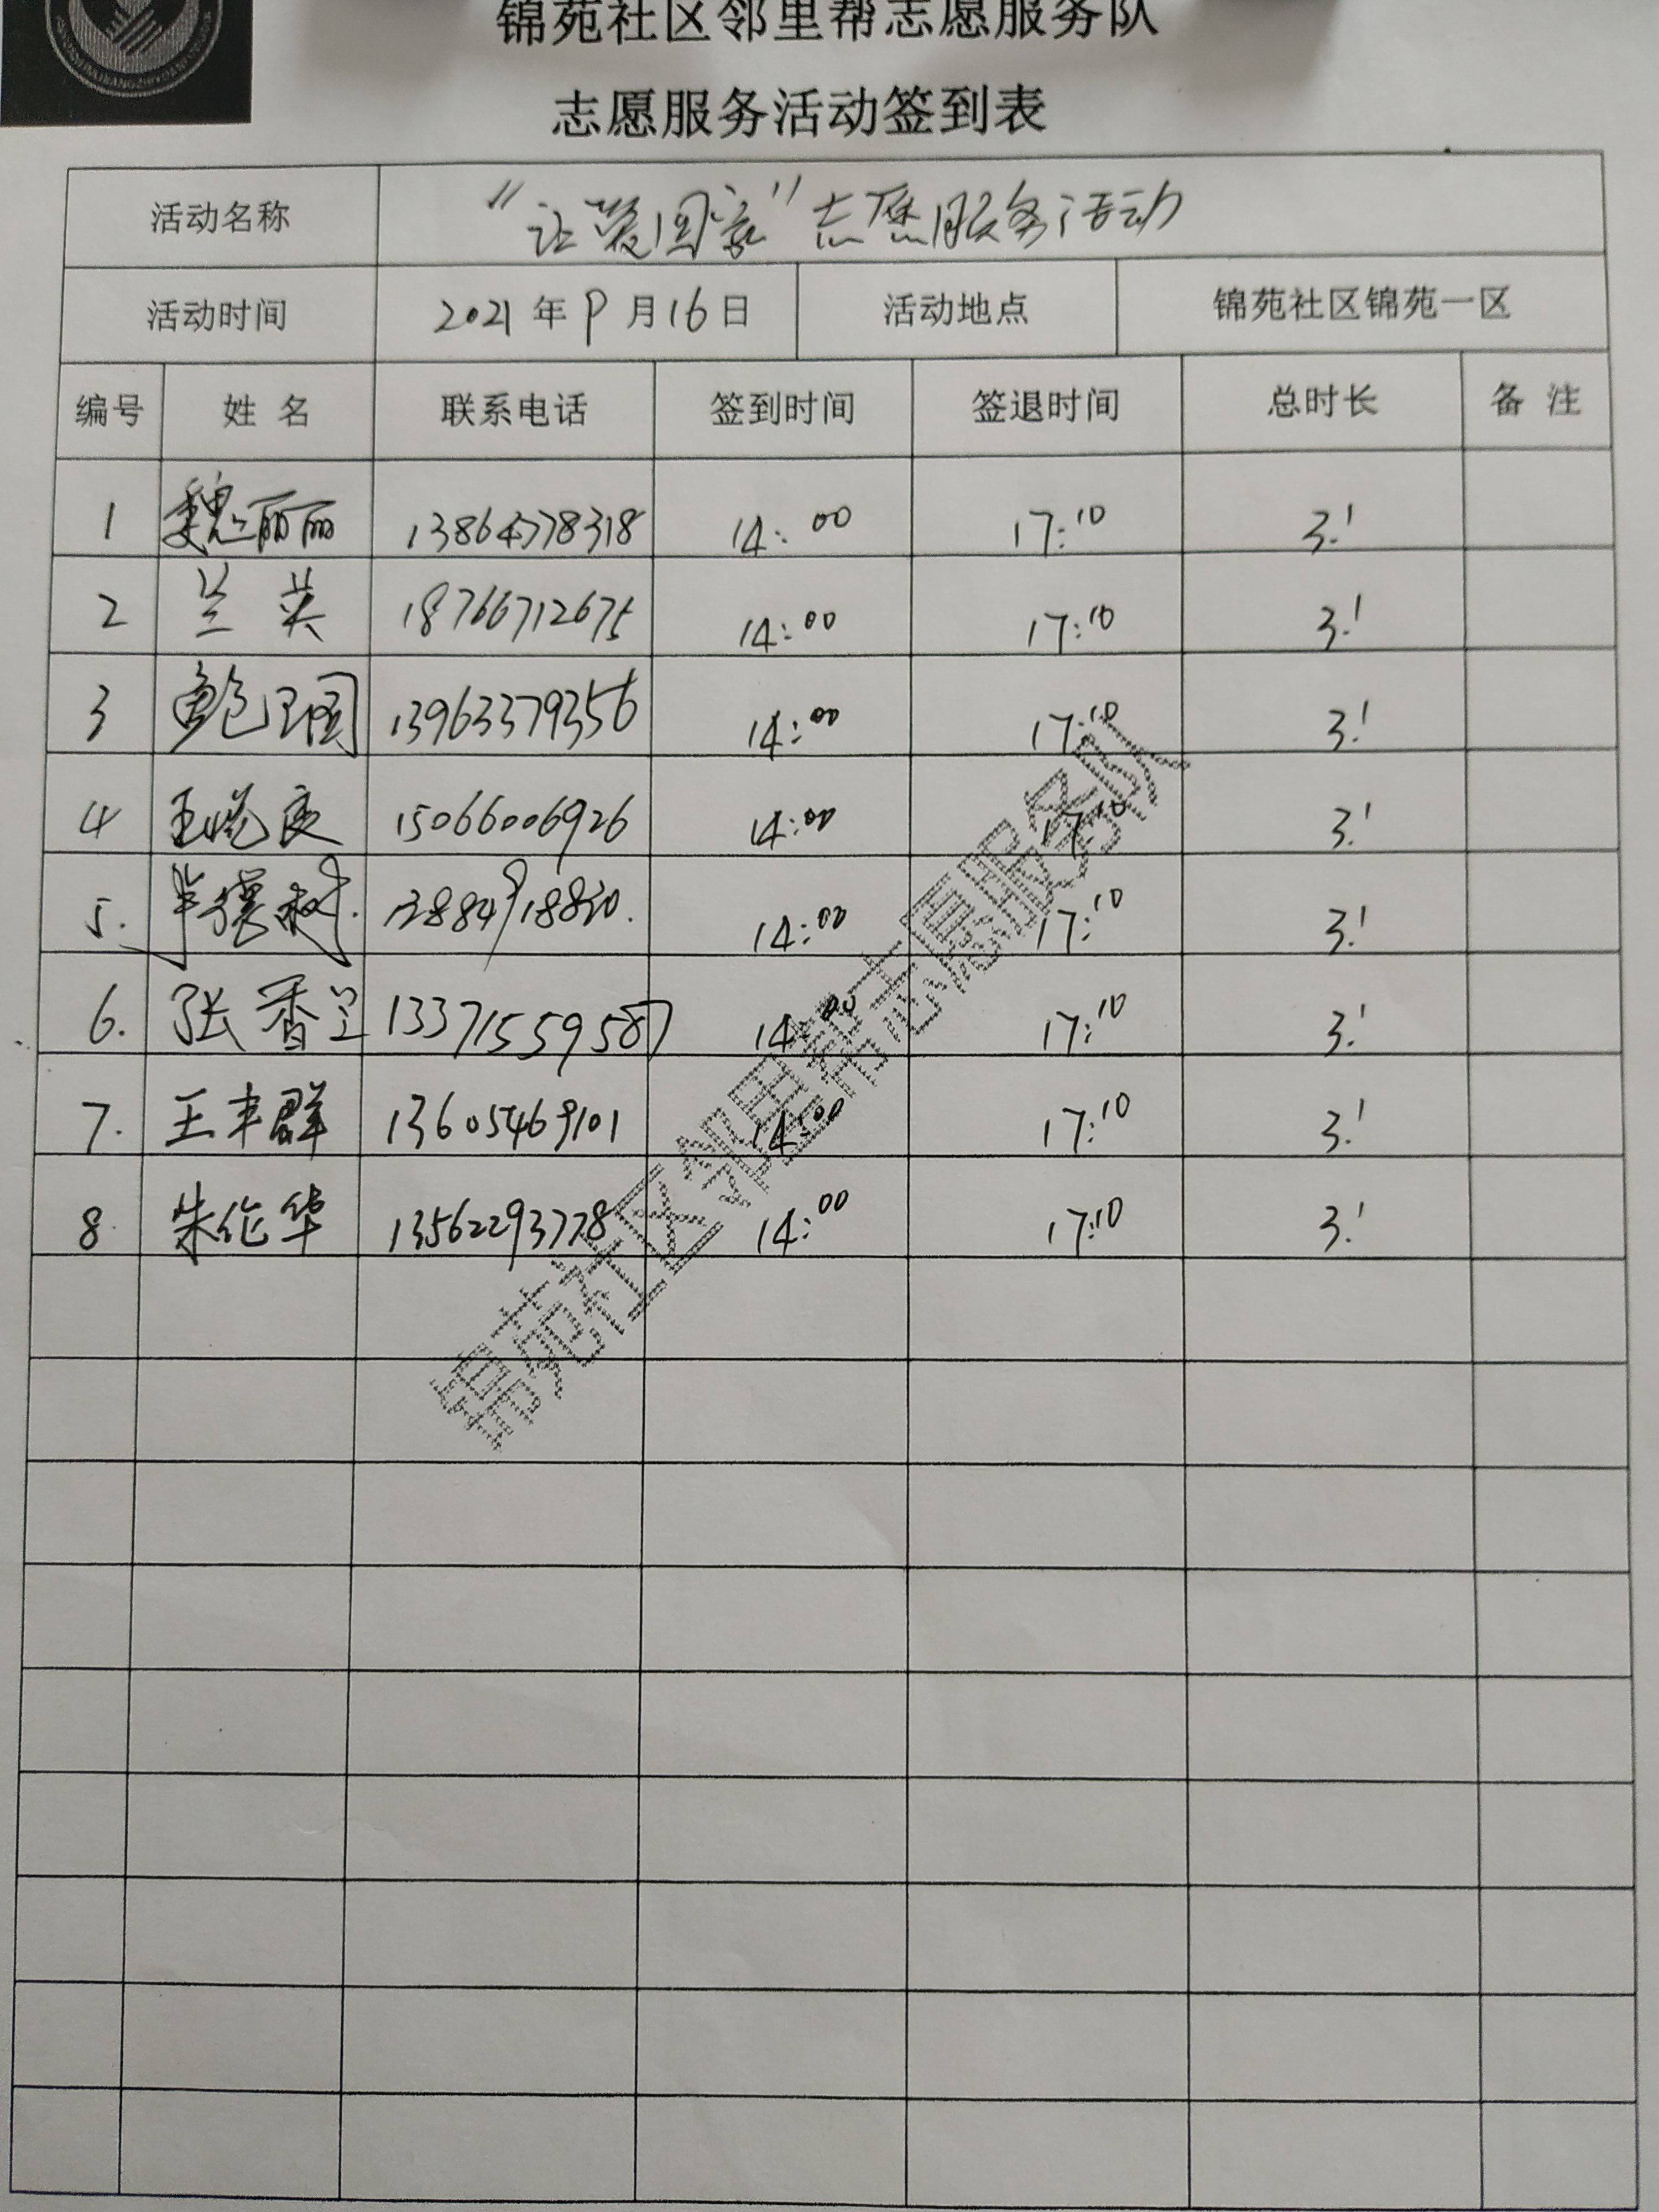 锦苑社区邻里帮志愿服务队
志愿服务活动签到表
活动名称 “让爱回家”志愿服务活动
活动时间 2021年9月16日 活动地点 锦苑社区锦苑一区
编号 姓名 联系电话 签到时间 签退时间 总时长 备注
1 魏丽丽 13864778318 14:00 17:10 3.1
2 兰英 18766712675 14:00 17:10 3.1
3 鲍卫国 13963379356 14:00 17:10 3.1
4 15066006926 14:00 17:10 3.1
5. 14:00 17:10 3.1
6. 张香兰 13371559587 14:00 17:10 3.1
7. 王丰群 13605469101 14:00 17:10 3.1
8. 朱作华 13562293778 14:00 17:10 3.1
锦苑社区邻里帮志愿服务队